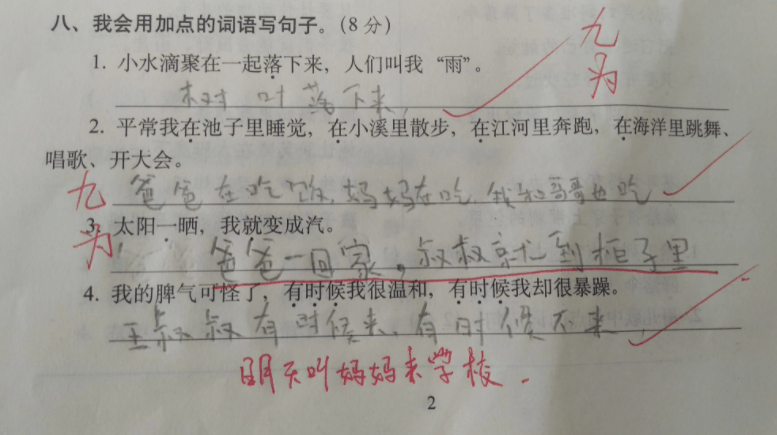 八、我会用加点的词语写句子。(8 分)
1. 小水滴聚在一起落下来，人们叫我“雨”。
九
为
树叶落下来，
2. 平常我在池子里睡觉，在小溪里散步，在江河里奔跑，在海洋里跳舞、
唱歌、开大会。
九
为
爸爸在吃饭，妈妈在吃，我和哥哥也吃
3. 太阳一晒，我就变成汽。
爸爸一回家，叔叔就到柜子里
4. 我的脾气可怪了，有时候我很温和，有时候我却很暴躁。
王叔叔有时候来，有时候不来，
明天叫妈妈来学校.
2